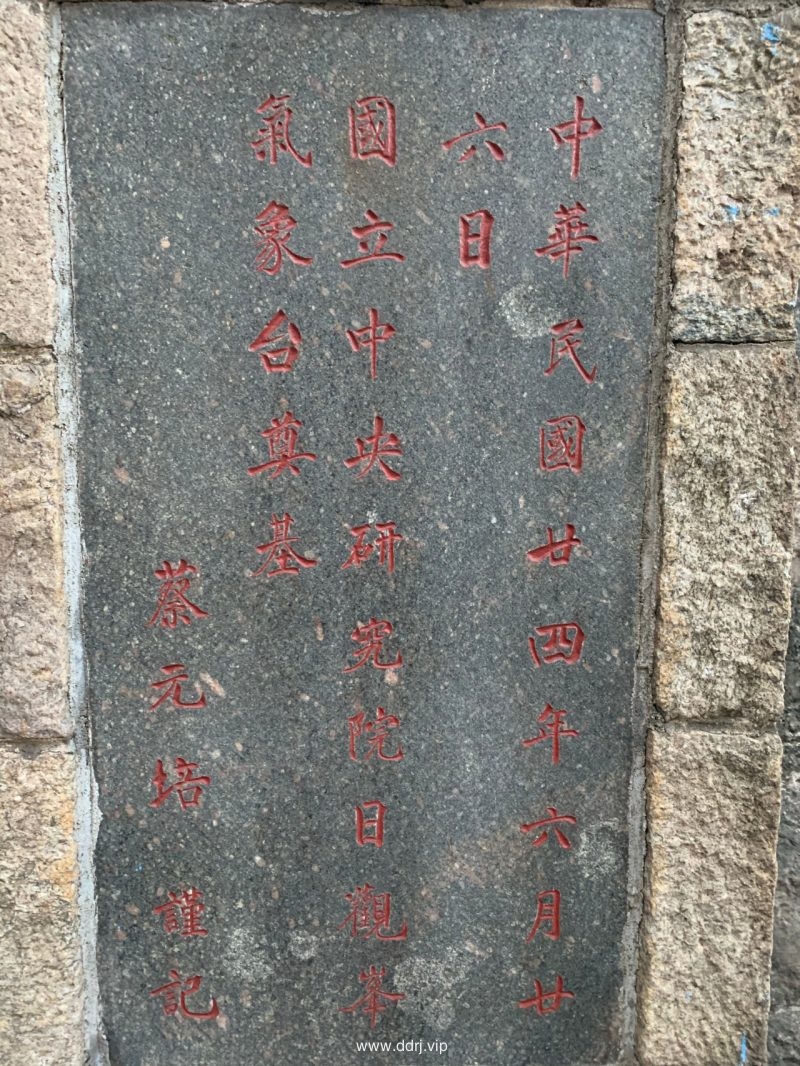 中華民國廿四年六月廿
六日
國立中央研究院日觀峯
氣象台奠基
蔡元培 謹記
www.ddrj.vip